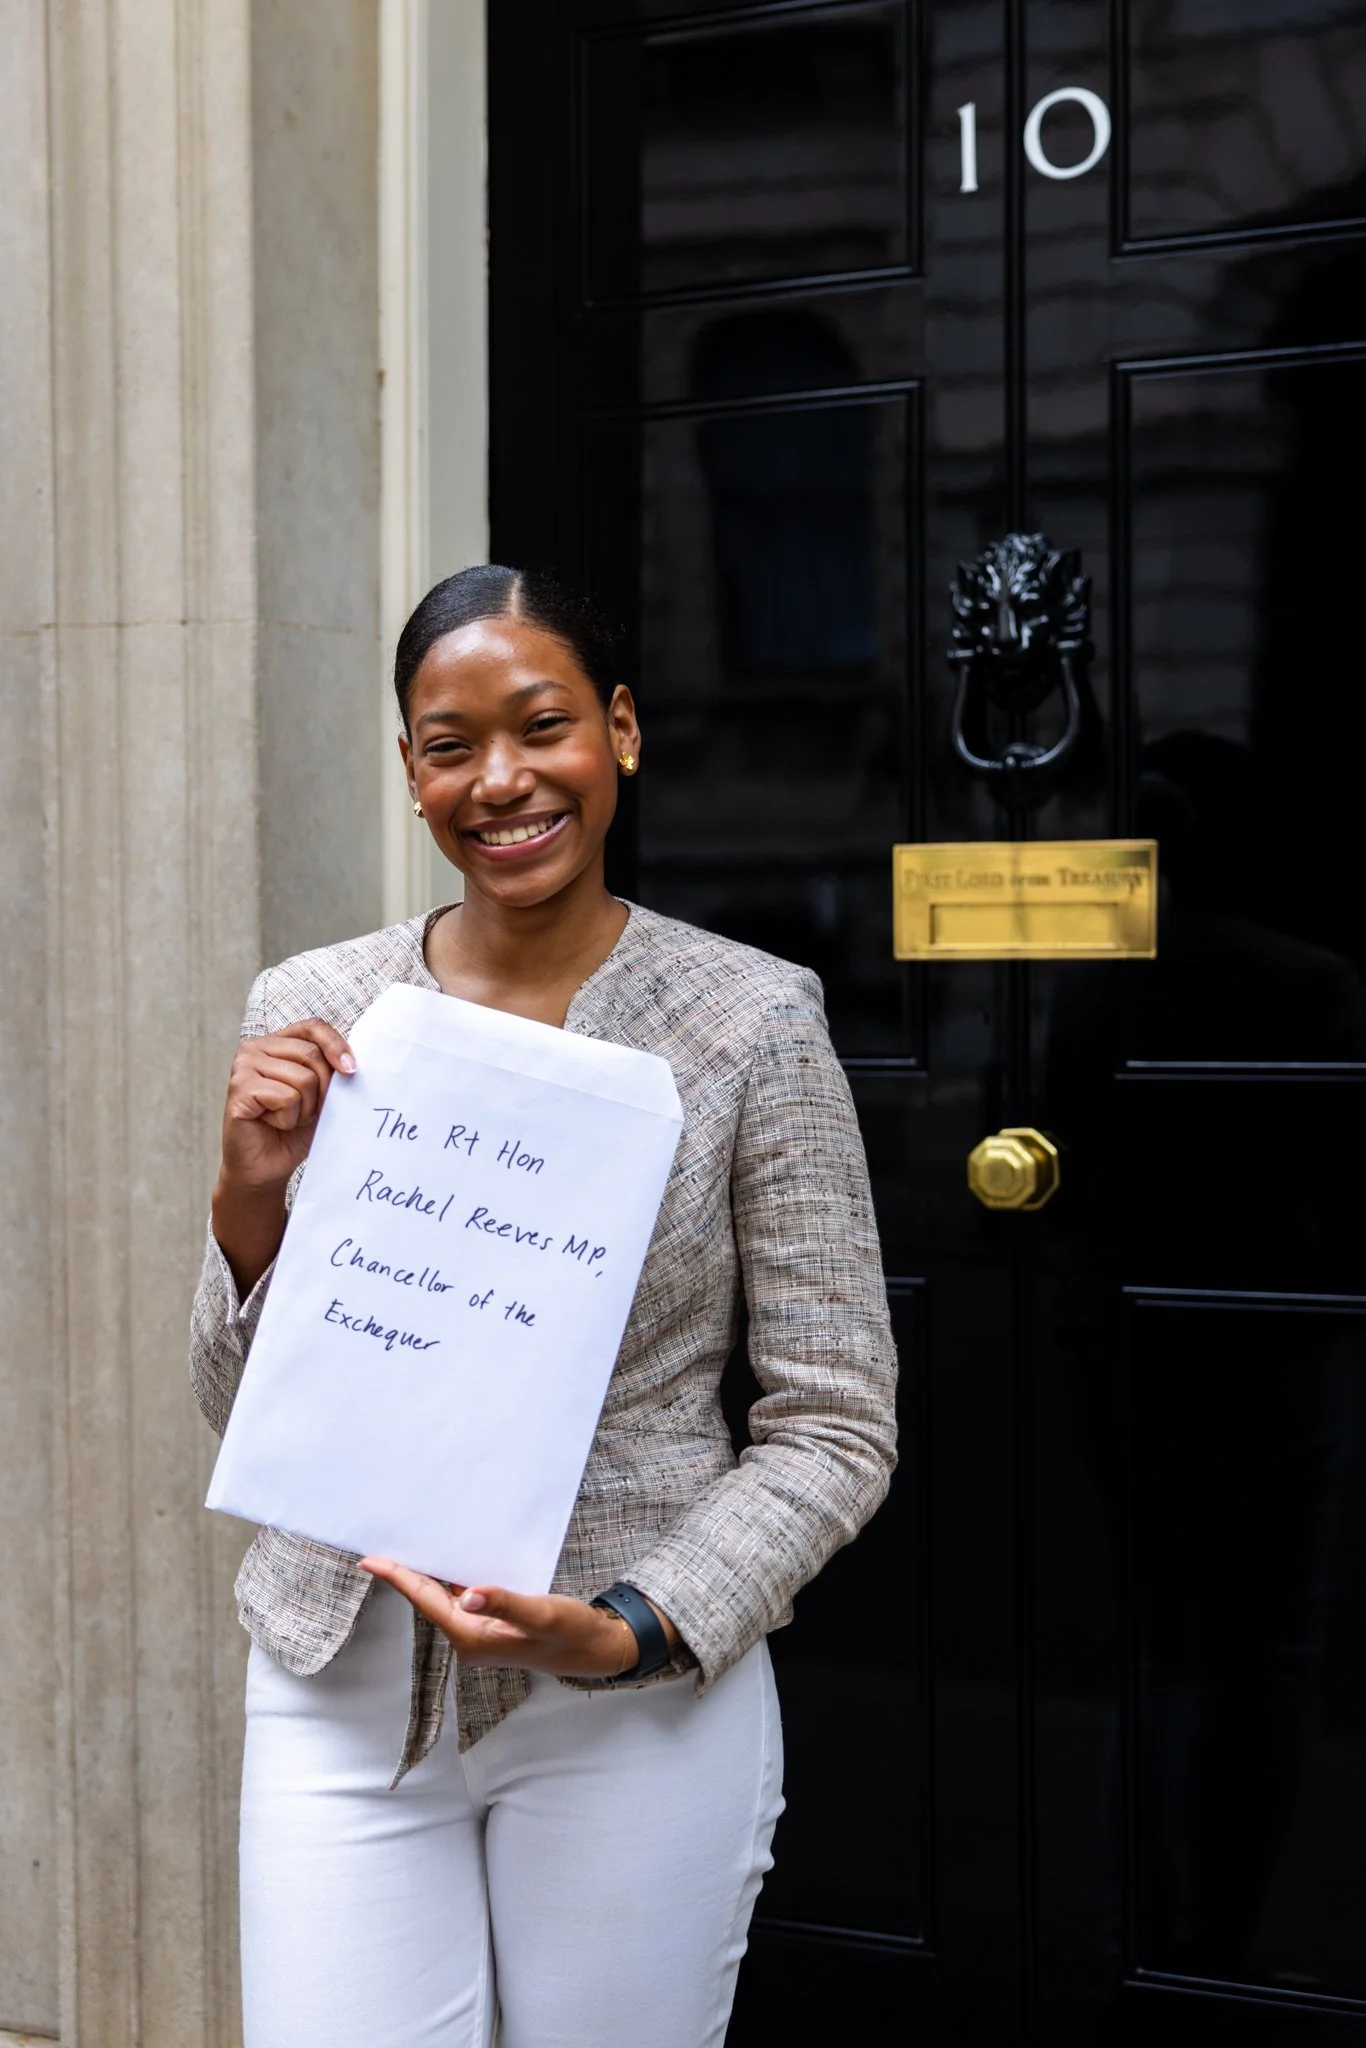 10
FIRST LORD OF THE TREASURY
The Rt Hon
Rachel Reeves MP,
Chancellor of the
Exchequer